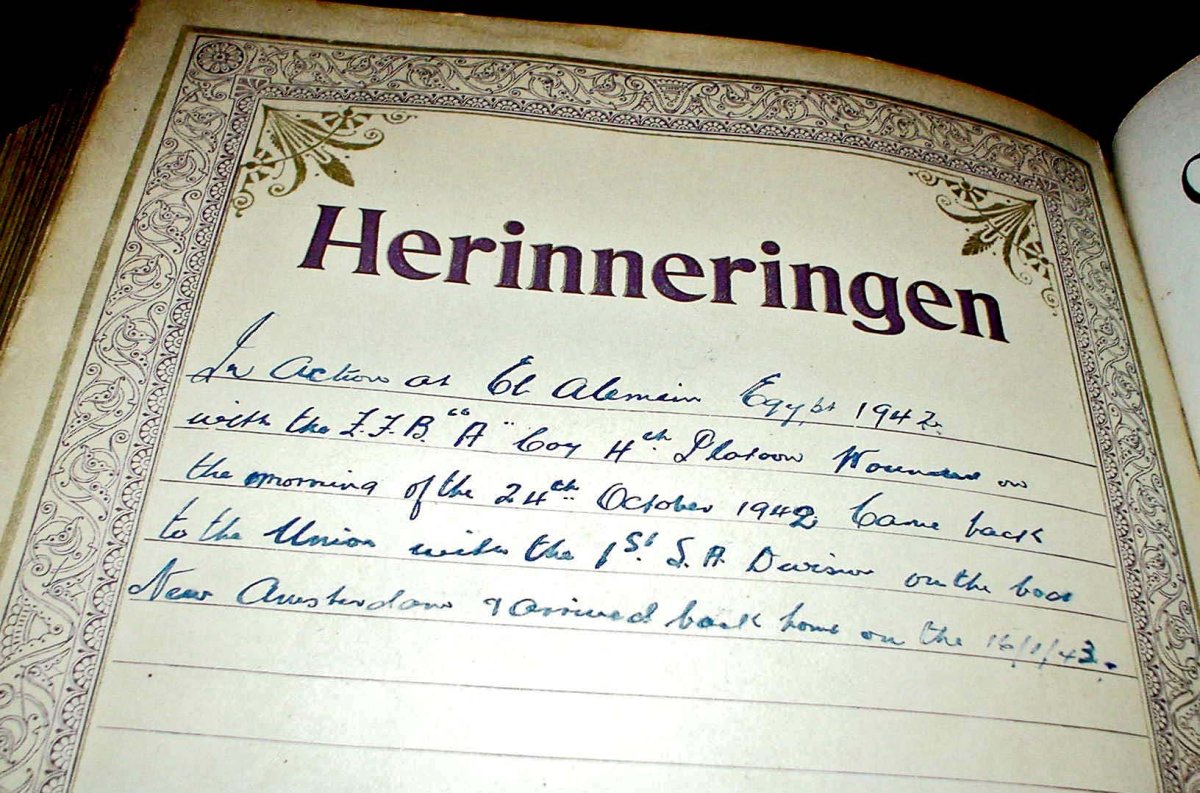 Herinneringen
In Action at El Alemein Egypt 1942.
with the F.F.B. "A" Coy 4th Platoon Wounded on
the morning of the 24th October 1942, Came back
to the Union with the 1st S.A. Division on the boat
New Amsterdam & arrived back home on the 16/1/43.